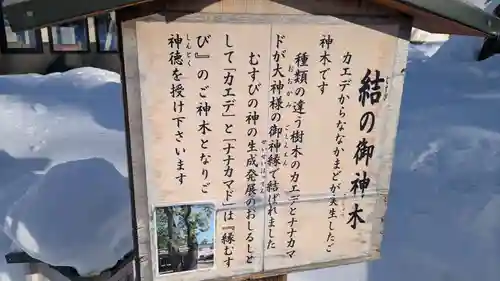 結の御神木
カエデからななかまどが実生したご
神木です
種類の違う樹木のカエデとナナカマ
ドが大神様の御神縁で結ばれました
おおかみ
ごしんえん
むすびの神の生成発展のおしるしと
せいせいはってん
して「カエデ」と「ナナカマド」は『縁むす
び』のご神木となりご
神徳を授け下さいます
しんとく